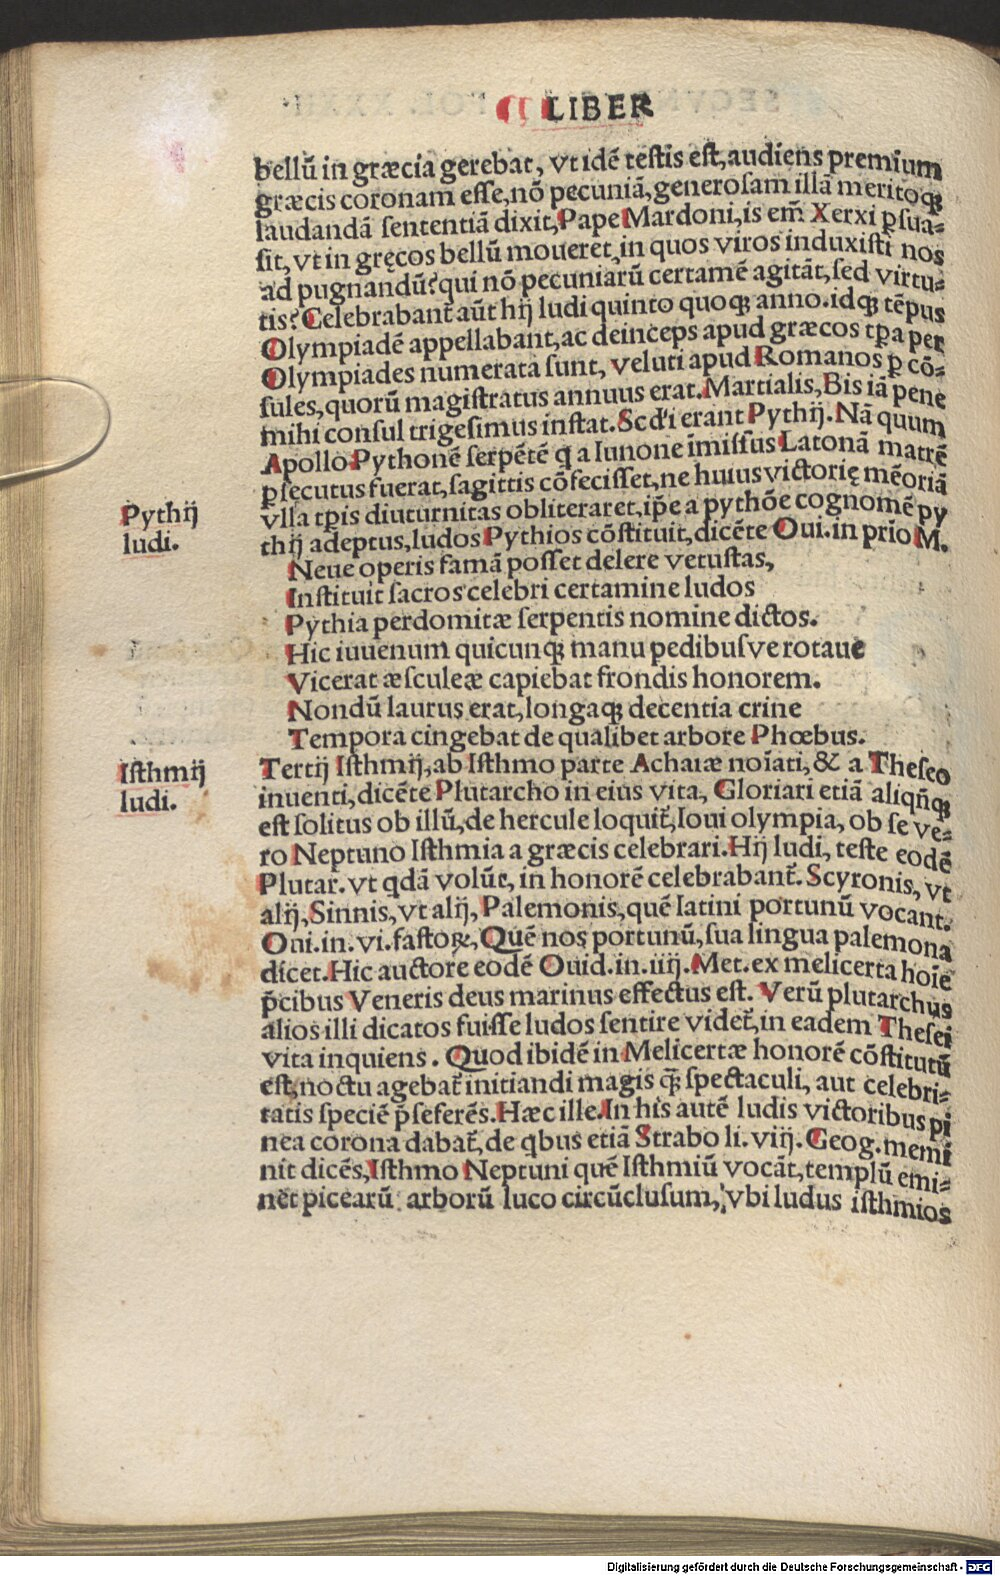 LIBER
bellū in græcia gerebat, vt idē testis est, audiens premium
græcis coronam esse, nō pecuniā, generosam illā meritoqꝫ
laudandā sententiā dixit, Pape Mardoni, is em̄ Xerxi ꝑsua⸗
sit, vt in gręcos bellū moueret, in quos viros induxisti nos
ad pugnandū? qui nō pecuniarū certamē agitāt, sed virtu⸗
tis? Celebrabant̄ aūt hij ludi quinto quoqꝫ anno. idqꝫ tēpus
Olympiadē appellabant, ac deinceps apud græcos tꝑa per
Olympiades numerata sunt, veluti apud Romanos ꝑ cō⸗
sules, quorū magistratus annuus erat. Martialis, Bis iā pene
mihi consul trigesimus instat. Scd'i erant Pythij. Nā quum
Apollo Pythonē serpētē q a Iunone īmissus Latonā matrē
ꝑsęcutus fuerat, sagittis cōfecisset, ne huius victorię mēoriā
vlla tꝑis diuturnitas obliteraret, ip̄e a pythōe cognomē py
thij adeptus, ludos Pythios cōstituit, dicēte Oui. in prīo M.
Pythij
ludi.
Neue operis famā posset delere vetustas,
Instituit sacros celebri certamine ludos
Pythia perdomitæ serpentis nomine dictos.
Hic iuuenum quicunqꝫ manu pedibusve rotaue
Vicerat æsculeæ capiebat frondis honorem.
Nondū laurus erat, longaqꝫ decentia crine
Tempora cingebat de qualibet arbore Phœbus.
Isthmij
ludi.
Tertij Isthmij, ab Isthmo parte Achaiæ noīati, & a Theseo
inuenti, dicēte Plutarcho in eius vita, Gloriari etiā aliqn̄qꝫ
est solitus ob illū, de hercule loquit̄, Ioui olympia, ob se ve⸗
ro Neptuno Isthmia a græcis celebrari. Hij ludi, teste eodē
Plutar. vt qdā volūt, in honorē celebrabant̄. Scyronis, vt
alij, Sinnis, vt alij, Palemonis, quē latini portunū vocant.
Oui. in. vi. fastoꝝ, Quē nos portunū, sua lingua palemona
dicet. Hic auctore eodē Ouid. in. iiij. Met. ex melicerta hoīe
p̄cibus Veneris deus marinus effectus est. Verū plutarchus
alios illi dicatos fuisse ludos sentire videt̄, in eadem Thesei
vita inquiens. Quod ibidē in Melicertæ honorē cōstitutū
est, noctu agebat̄ initiandi magis q̄ꝫ spectaculi, aut celebri⸗
tatis speciē p̄seferēs. Hæc ille. In his autē ludis victoribus pi
nea corona dabat̄, de qbus etiā Strabo li. viij. Geog. memi
nit dicēs, Isthmo Neptuni quē Isthmiū vocāt, templū emi⸗
net picearū arborū luco circūclusum, vbi ludus isthmios
Digitalisierung gefördert durch die Deutsche Forschungsgemeinschaft - DFG